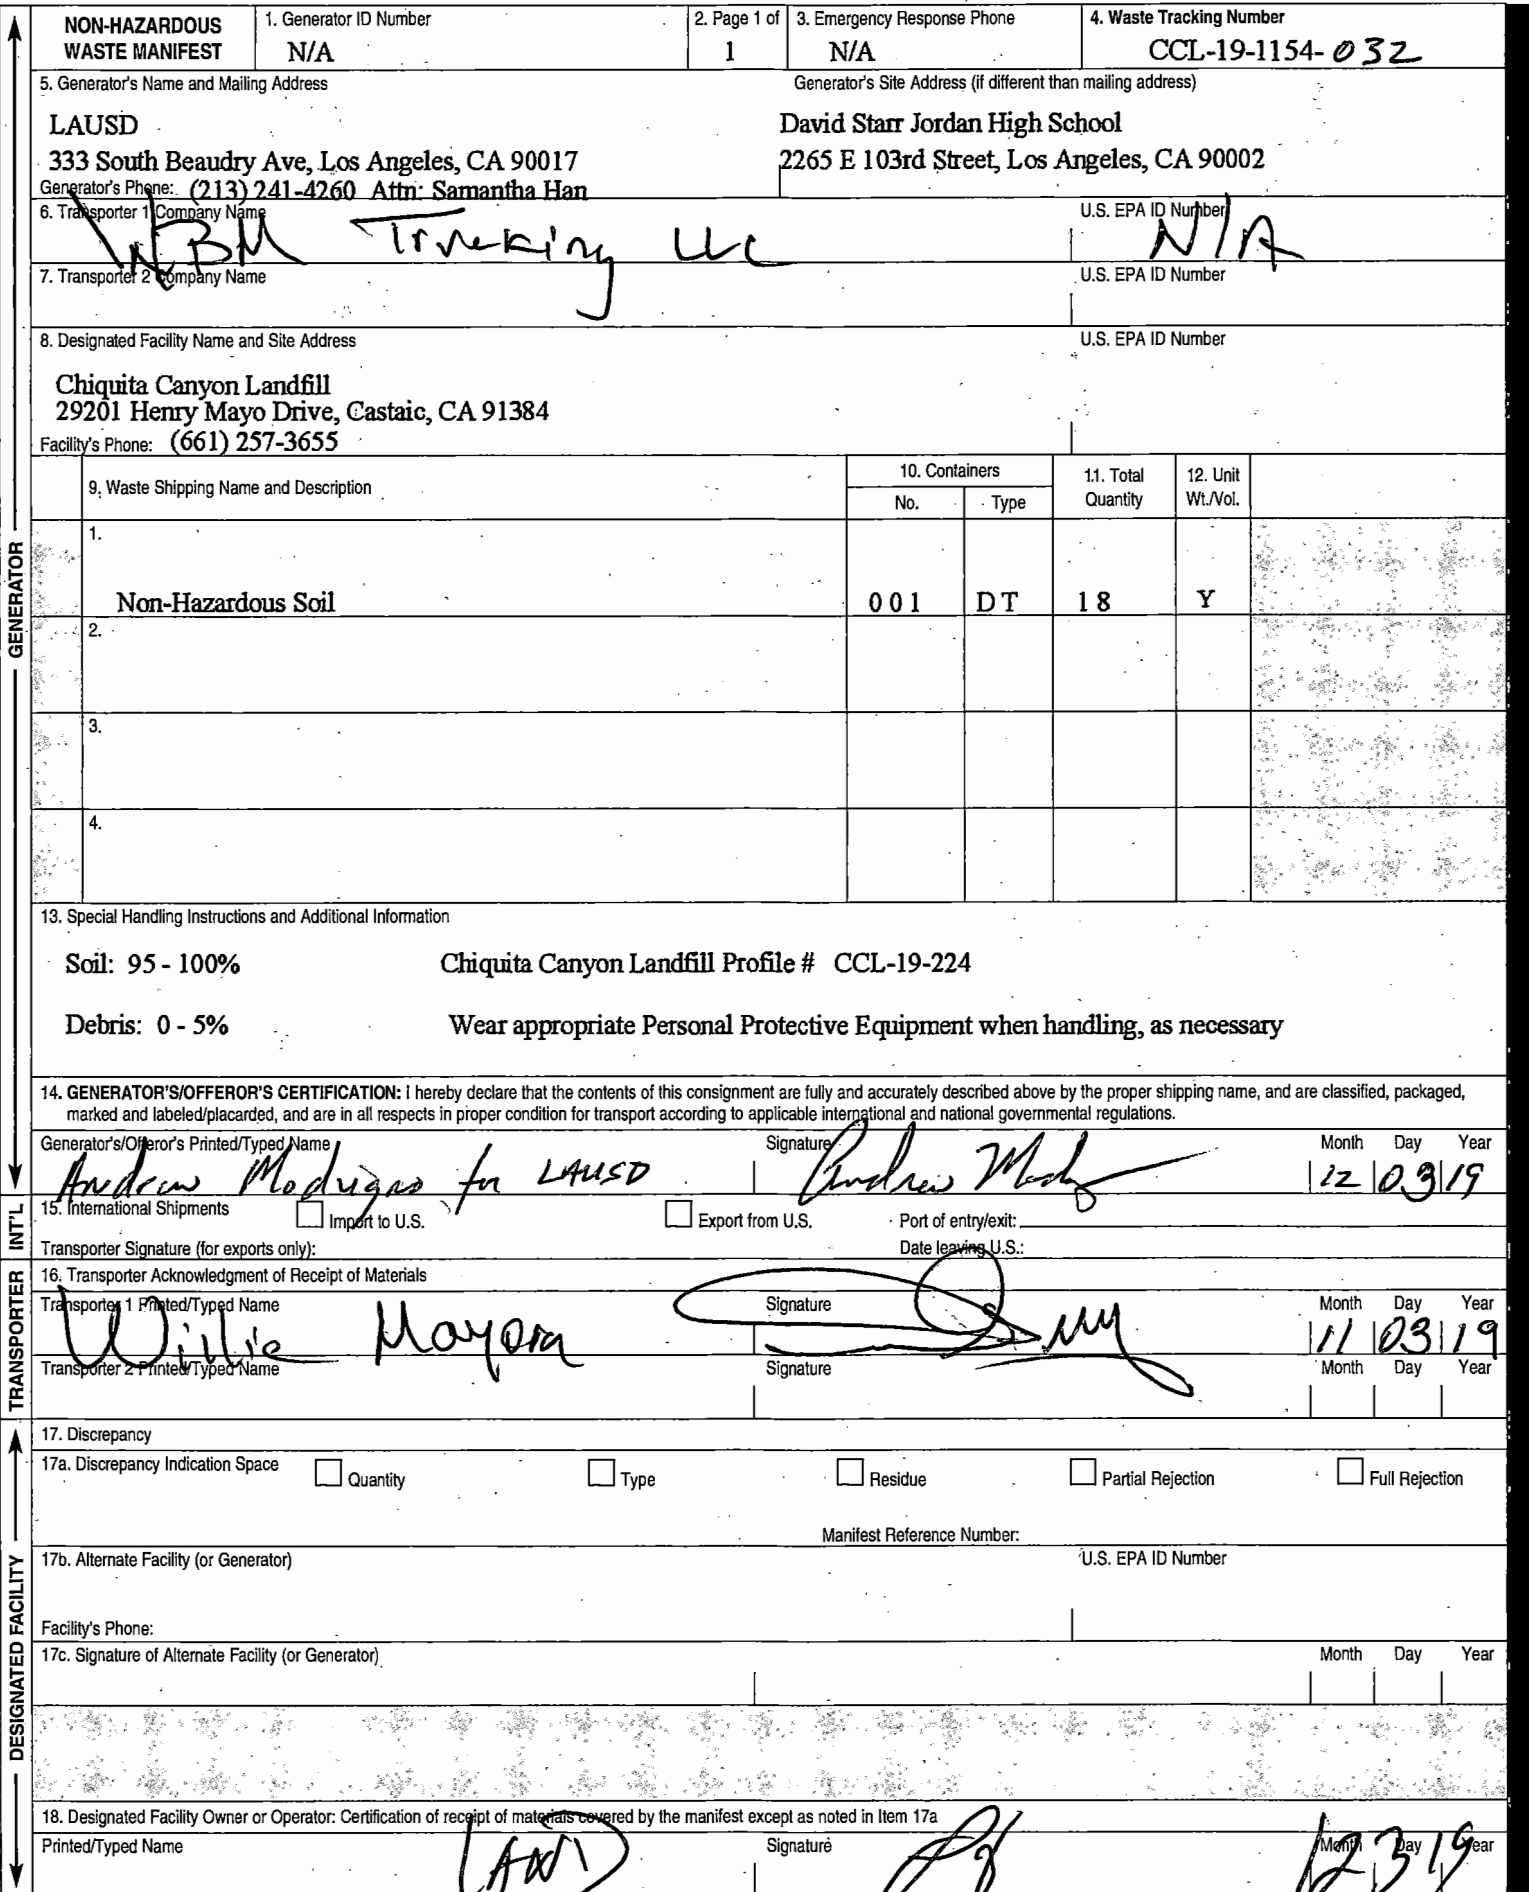 NON-HAZARDOUS WASTE MANIFEST
1. Generator ID Number
N/A
2. Page 1 of
1
3. Emergency Response Phone
N/A
4. Waste Tracking Number
CCL-19-1154-032
5. Generator's Name and Mailing Address
Generator's Site Address (if different than mailing address)
LAUSD
David Starr Jordan High School
333 South Beaudry Ave, Los Angeles, CA 90017
2265 E 103rd Street, Los Angeles, CA 90002
Generator's Phone: (213) 241-4260 Attn: Samantha Han
6. Transporter 1 Company Name
U.S. EPA ID Number
WBM Trucking LLC
N/A
7. Transporter 2 Company Name
U.S. EPA ID Number
8. Designated Facility Name and Site Address
U.S. EPA ID Number
Chiquita Canyon Landfill
29201 Henry Mayo Drive, Castaic, CA 91384
Facility's Phone: (661) 257-3655
9. Waste Shipping Name and Description
10. Containers
No.
Type
11. Total Quantity
12. Unit Wt./Vol.
1.
Non-Hazardous Soil
001 DT 18 Y
2.
3.
4.
13. Special Handling Instructions and Additional Information
Soil: 95 - 100%
Chiquita Canyon Landfill Profile # CCL-19-224
Debris: 0 - 5%
Wear appropriate Personal Protective Equipment when handling, as necessary
14. GENERATOR'S/OFFEROR'S CERTIFICATION: I hereby declare that the contents of this consignment are fully and accurately described above by the proper shipping name, and are classified, packaged,
marked and labeled/placarded, and are in all respects in proper condition for transport according to applicable international and national governmental regulations.
Generator's/Offeror's Printed/Typed Name
Signature
Month Day Year
Andrew Modugno for LAUSD
Andrew
12 03 19
15. International Shipments
Import to U.S.
Export from U.S.
Port of entry/exit:
Transporter Signature (for exports only):
Date leaving U.S.:
16. Transporter Acknowledgment of Receipt of Materials
Transporter 1 Printed/Typed Name
Signature
Month Day Year
Willie Mayora
11 03 19
Transporter 2 Printed/Typed Name
Signature
Month Day Year
17. Discrepancy
17a. Discrepancy Indication Space
Quantity
Type
Residue
Partial Rejection
Full Rejection
Manifest Reference Number:
17b. Alternate Facility (or Generator)
U.S. EPA ID Number
Facility's Phone:
17c. Signature of Alternate Facility (or Generator)
Month Day Year
18. Designated Facility Owner or Operator: Certification of receipt of materials covered by the manifest except as noted in Item 17a
Printed/Typed Name
Signature
Month Day Year
12 3 19
GENERATOR
INT'L
TRANSPORTER
DESIGNATED FACILITY